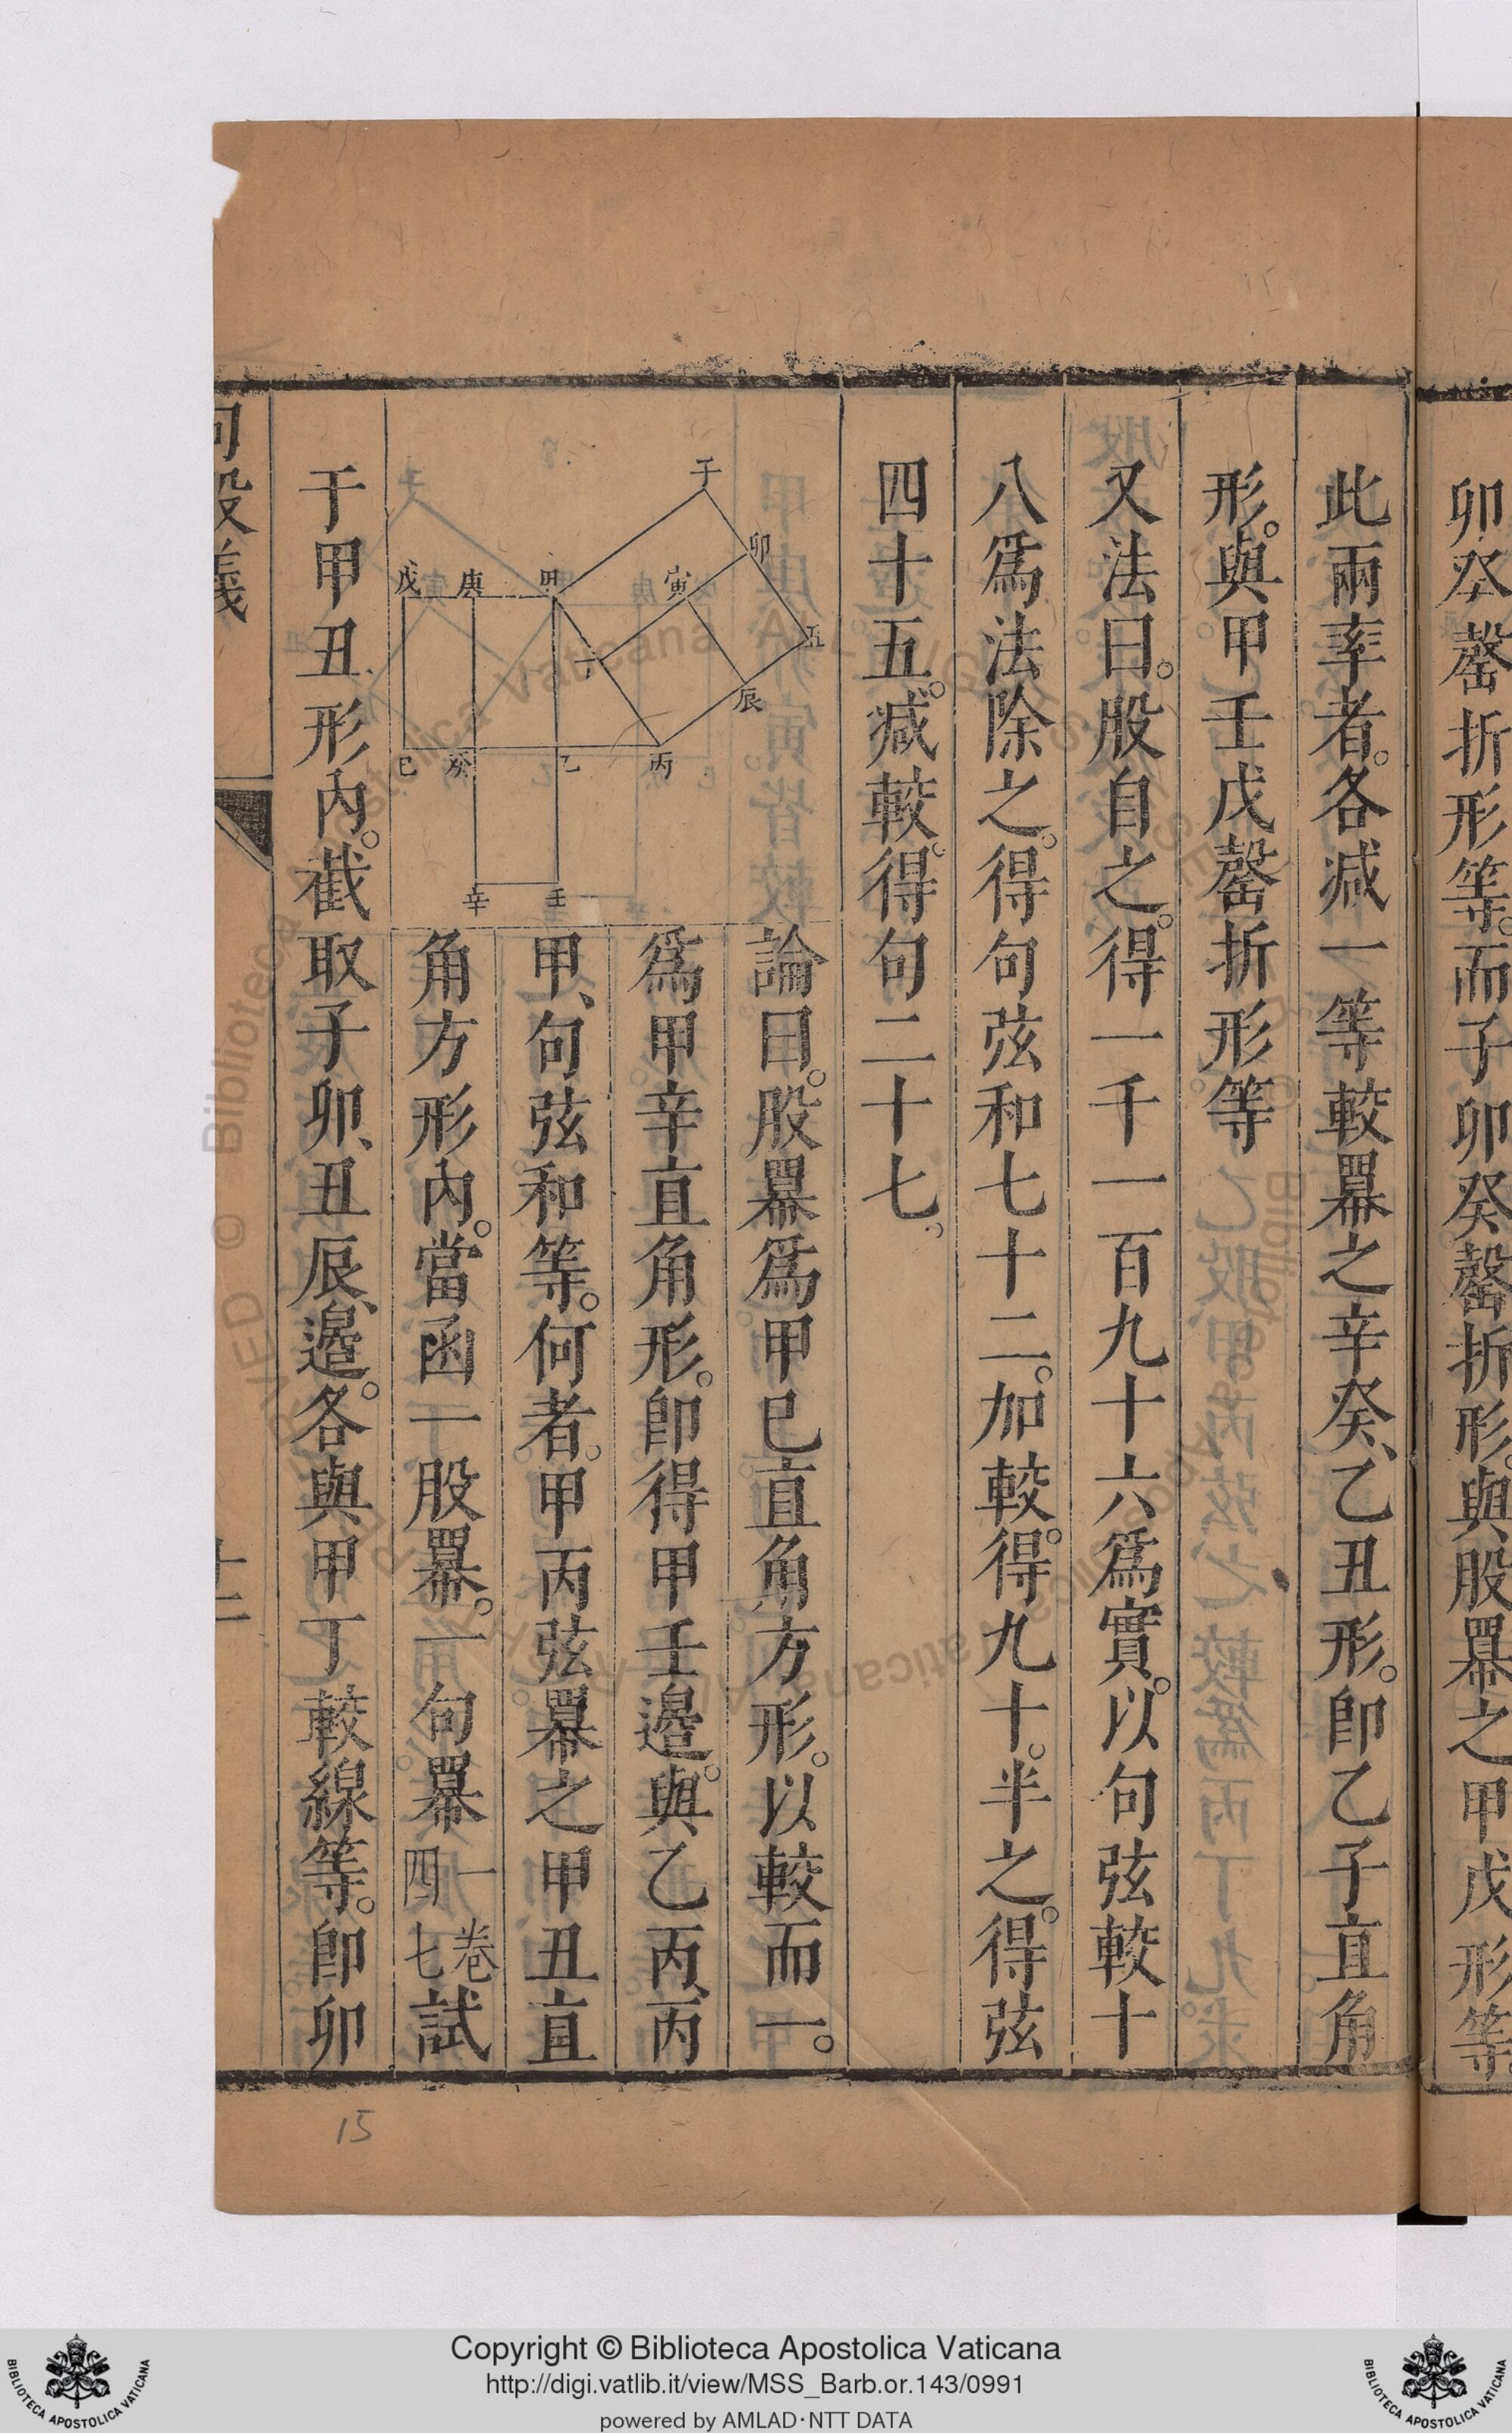 卯癸罄折形等。而子卯癸罄折形。與股羃之甲戊形等。
此兩率者。各减一等較羃之辛癸、乙丑形。卽乙子直角
形。與甲壬戊罄折形等
又法曰。股自之。得一千一百九十六爲實。以句弦較十
八爲法除之。得句弦和七十二。加較。得九十。半之。得弦
四十五。减較。得句二十七。
論曰。股羃爲甲巳直角方形。以較而一。
爲甲辛直角形。卽得甲壬邉。與乙丙、丙
甲、句弦和等。何者。甲丙弦羃之甲丑直
角方形內。當函一股羃。一句羃一卷四七試
于甲丑形內。截取子卯、丑辰、邉。各與甲丁較線等。卽卯
子
卯
寅
丑
辰
丁
甲
庚
戊
丙
乙
癸
巳
壬
辛
句股義
十二
15
Copyright © Biblioteca Apostolica Vaticana
http://digi.vatlib.it/view/MSS_Barb.or.143/0991
powered by AMLAD·NTT DATA
BIBLIOTECA APOSTOLICA VATICANA
BIBLIOTECA APOSTOLICA VATICANA